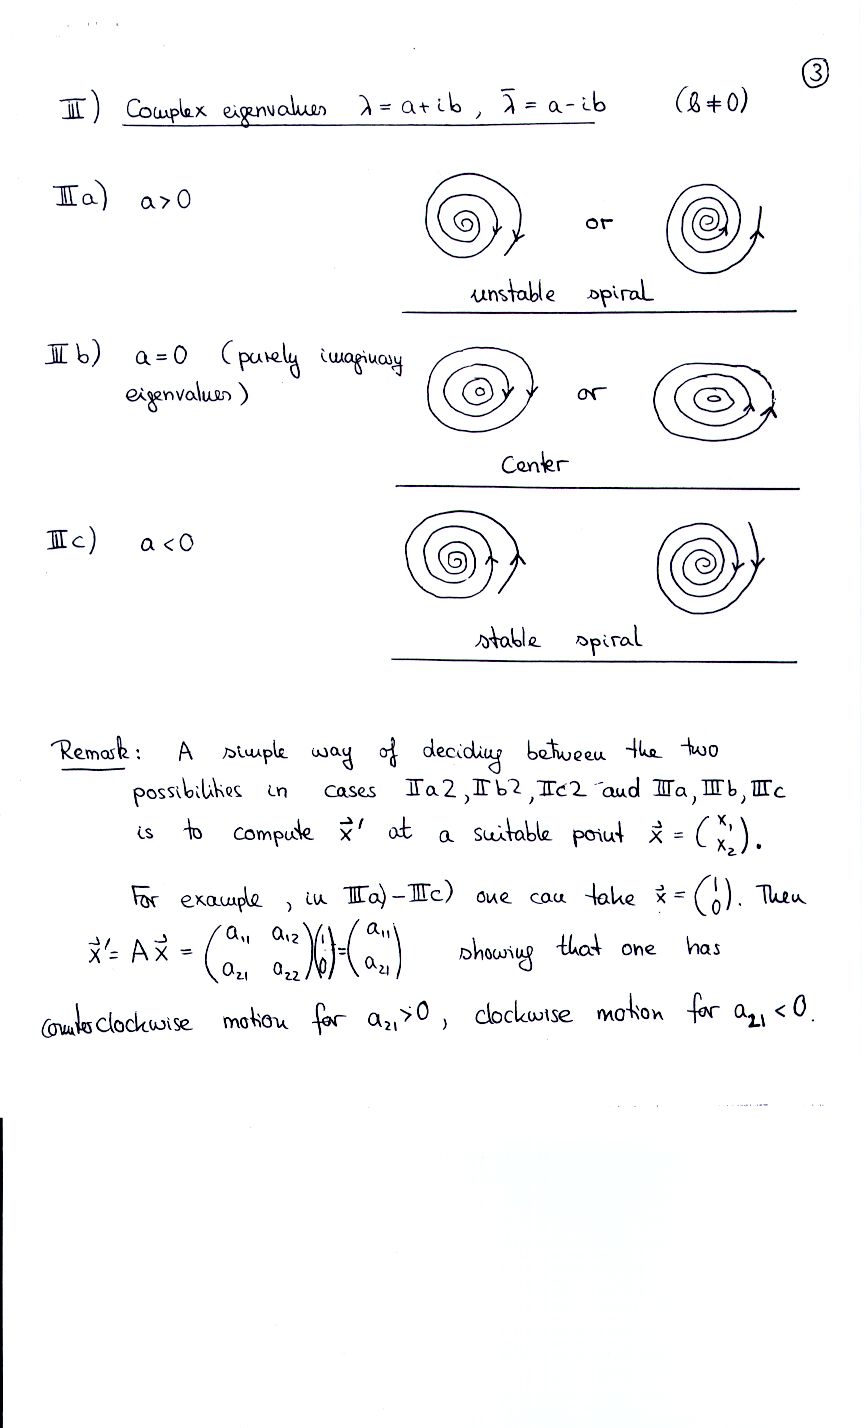 ③
III) Complex eigenvalues λ = a+ib, λ̄ = a-ib (b≠0)
IIIa) a>0
or
unstable spiral
IIIb) a=0 (purely imaginary
eigenvalues)
or
Center
IIIc) a<0
stable spiral
Remark: A simple way of deciding between the two
possibilities in cases IIa2, IIb2, IIc2 and IIIa, IIIb, IIIc
is to compute x⃗' at a suitable point x⃗ = (x₁ x₂).
For example, in IIIa)-IIIc) one can take x⃗ = (1 0). Then
x⃗' = Ax⃗ = (a₁₁ a₁₂ a₂₁ a₂₂)(1 0) = (a₁₁ a₂₁) showing that one has
counterclockwise motion for a₂₁>0, clockwise motion for a₂₁<0.